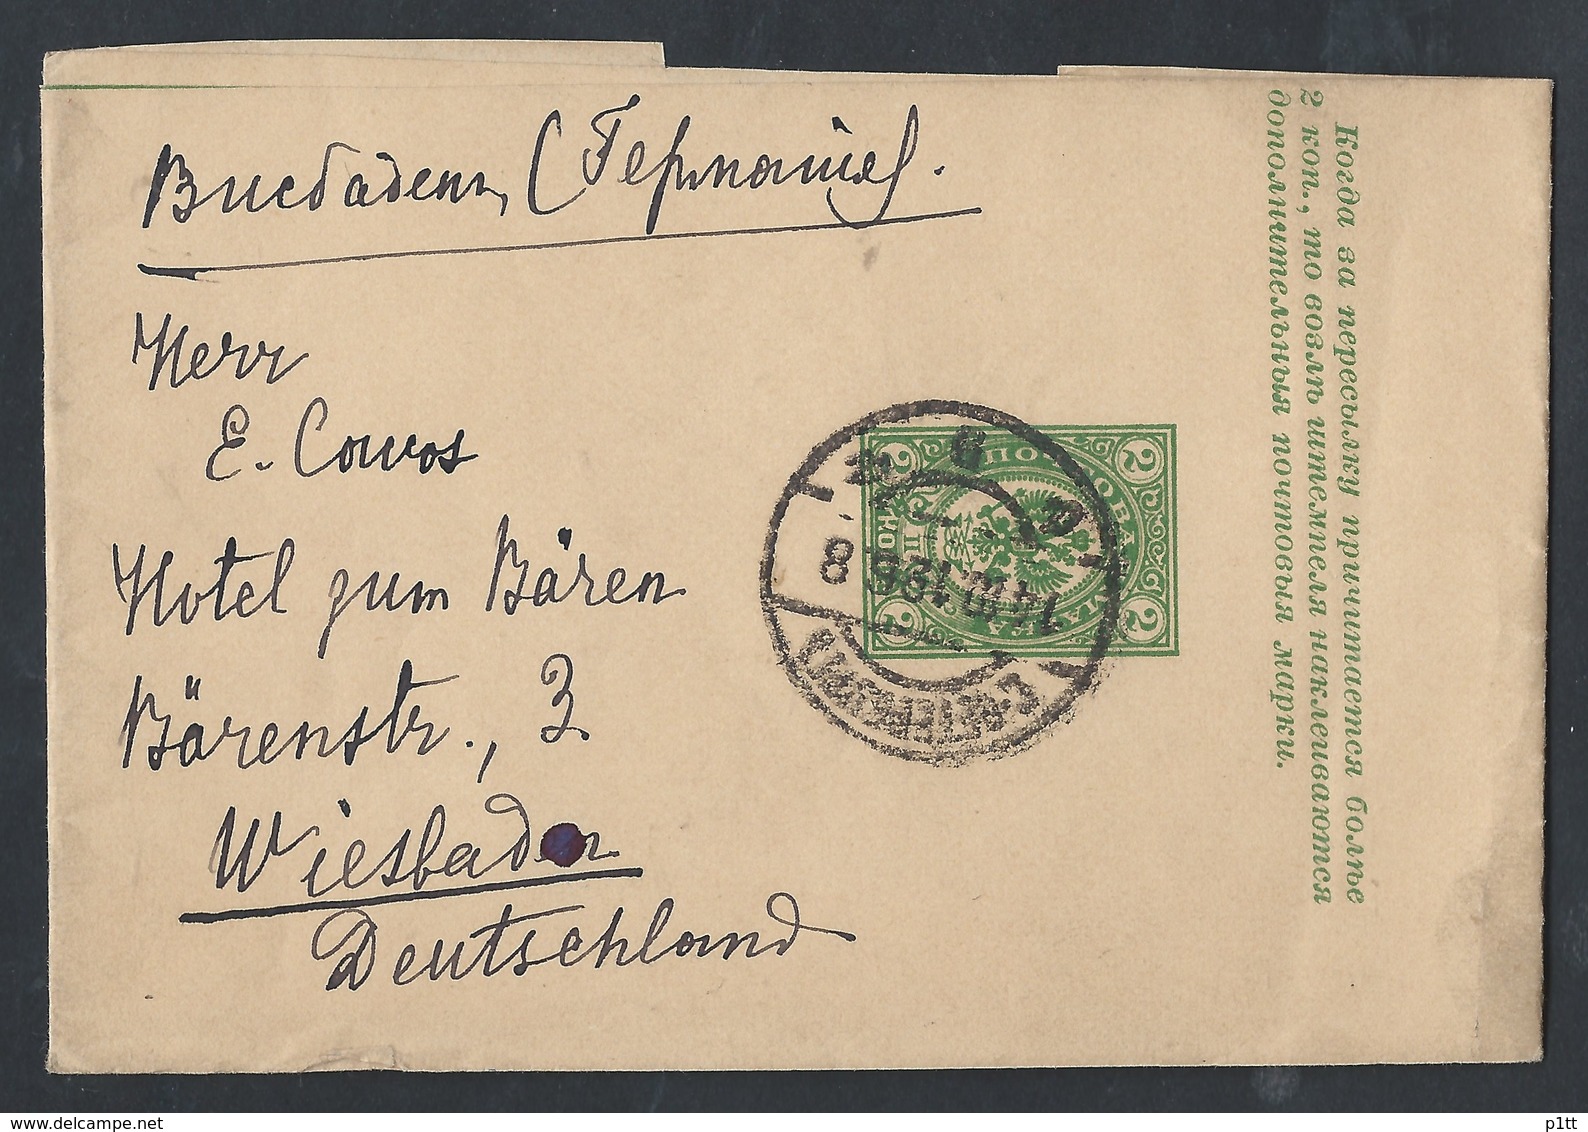 Висбаденъ (Германія).
Herr
E. Couvos
Hotel zum Bären
Bärenstr., 3
Wiesbaden
Deutschland
Когда за пересылку причитается болѣе
2 коп., то возлѣ штемпеля наклеиваются
дополнительныя почтовыя марки.
2 2 2 2
ПОЧТОВАЯ МАРКА
С-ПЕТЕРБУРГЪ
8
www.delcampe.net
p1tt